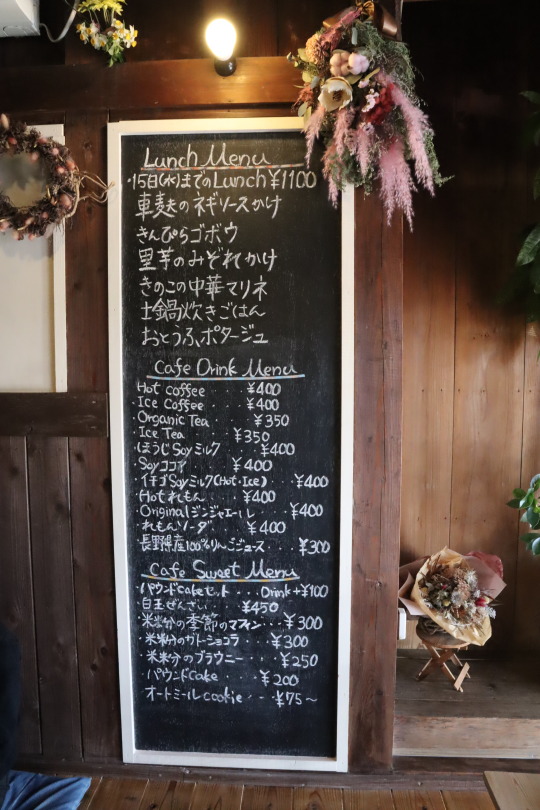 Lunch Menu
・15日(水)までのLunch ¥1100
車麩のネギソースかけ
きんぴらゴボウ
里芋のみぞれかけ
きのこの中華マリネ
土鍋炊きごはん
おとうふポタージュ
Cafe Drink Menu
Hot coffee ・・・ ¥400
Ice Coffee ・・・ ¥400
Organic Tea ・・・ ¥350
Ice Tea ・・・ ¥350
ほうじSoyミルク ・・・ ¥400
Soyココア ・・・ ¥400
イチゴSoyミルク(Hot・Ice) ・・・ ¥400
Hotれもん ・・・ ¥400
Originalジンジャエール ・・・ ¥400
れもんソーダ ・・・ ¥400
長野県産100%りんごジュース ・・・ ¥300
Cafe Sweet Menu
・パウンドcakeセット ・・・ Drink+¥100
・白玉ぜんざい ・・・ ¥450
・米粉の季節のマフィン ・・・ ¥300
・米粉のガトーショコラ ・・・ ¥300
・米粉のブラウニー ・・・ ¥250
・パウンドcake ・・・ ¥200
・オートミールcookie ・・・ ¥75〜